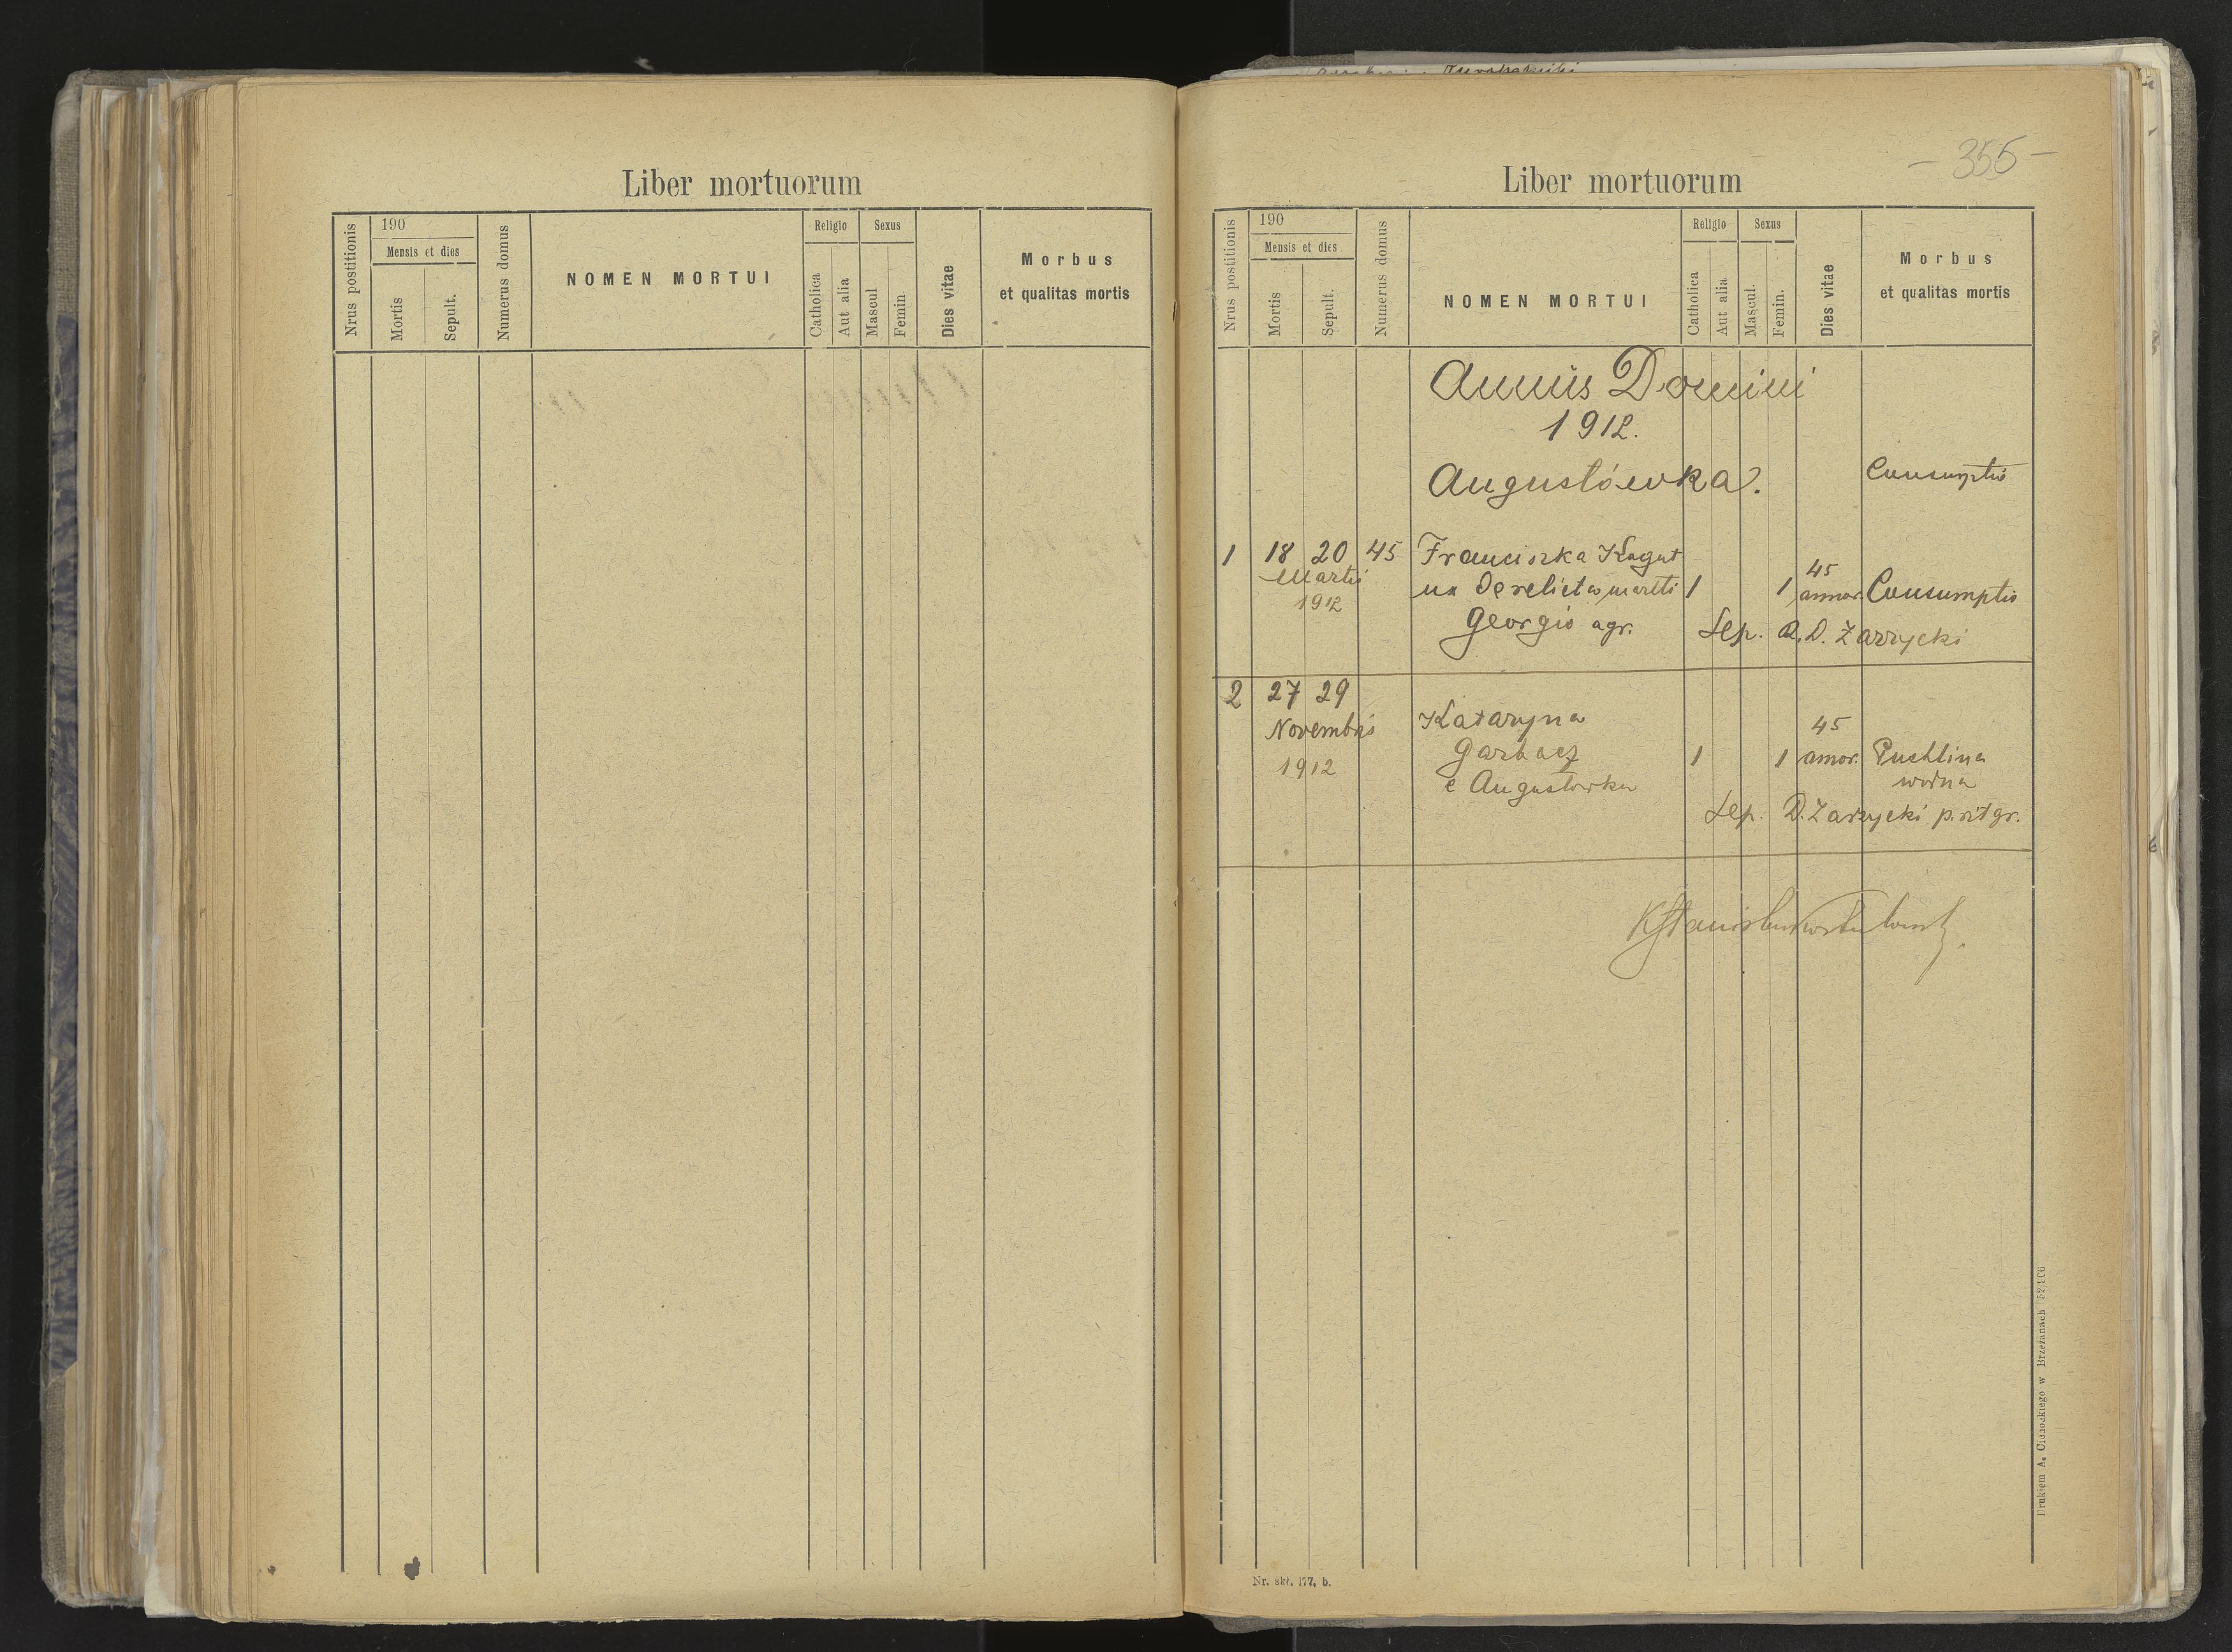 Liber mortuorum
Nrus postitionis
190
Mensis et dies
Mortis
Sepult.
Numerus domus
NOMEN MORTUI
Religio
Catholica
Aut alia
Sexus
Mascul
Femin.
Dies vitae
Morbus
et qualitas mortis
- 355 -
Liber mortuorum
Nrus postitionis
190
Mensis et dies
Mortis
Sepult.
Numerus domus
NOMEN MORTUI
Religio
Catholica
Aut alia
Sexus
Mascul.
Femin.
Dies vitae
Morbus
et qualitas mortis
Annus Domini
1912.
Augustówka.
Consumptio
1 18 20 45 Franciszka Kogut
Martii
1912
derelicta mariti
Georgio agr.
1 1 45 annor. Consumptio
Sep. R. D. Zarzycki
2 27 29
Novembris
1912
Kataryna
Garbacz
e Augustowka
1 1 45 annor. Puchlina
wodna
Sep. D. Zarzycki p. rit gr.
Nr. skł. 177. b.
Drukiem A. Cienockiego w Brzeżanach